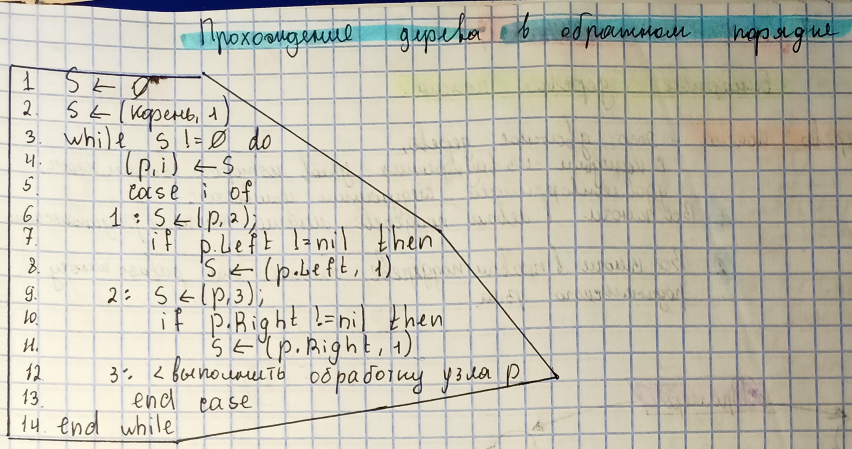 Прохождение дерева в обратном порядке
1 S ← ∅
2. S ← (корень, 1)
3. while S != ∅ do
4. (p,i) ← S
5. case i of
6 1: S ← (p,2);
7. if p.Left != nil then
8. S ← (p.Left, 1)
9. 2: S ← (p,3);
10. if p.Right != nil then
11. S ← (p.Right, 1)
12 3: < выполнить обработку узла p
13 end case
14. end while